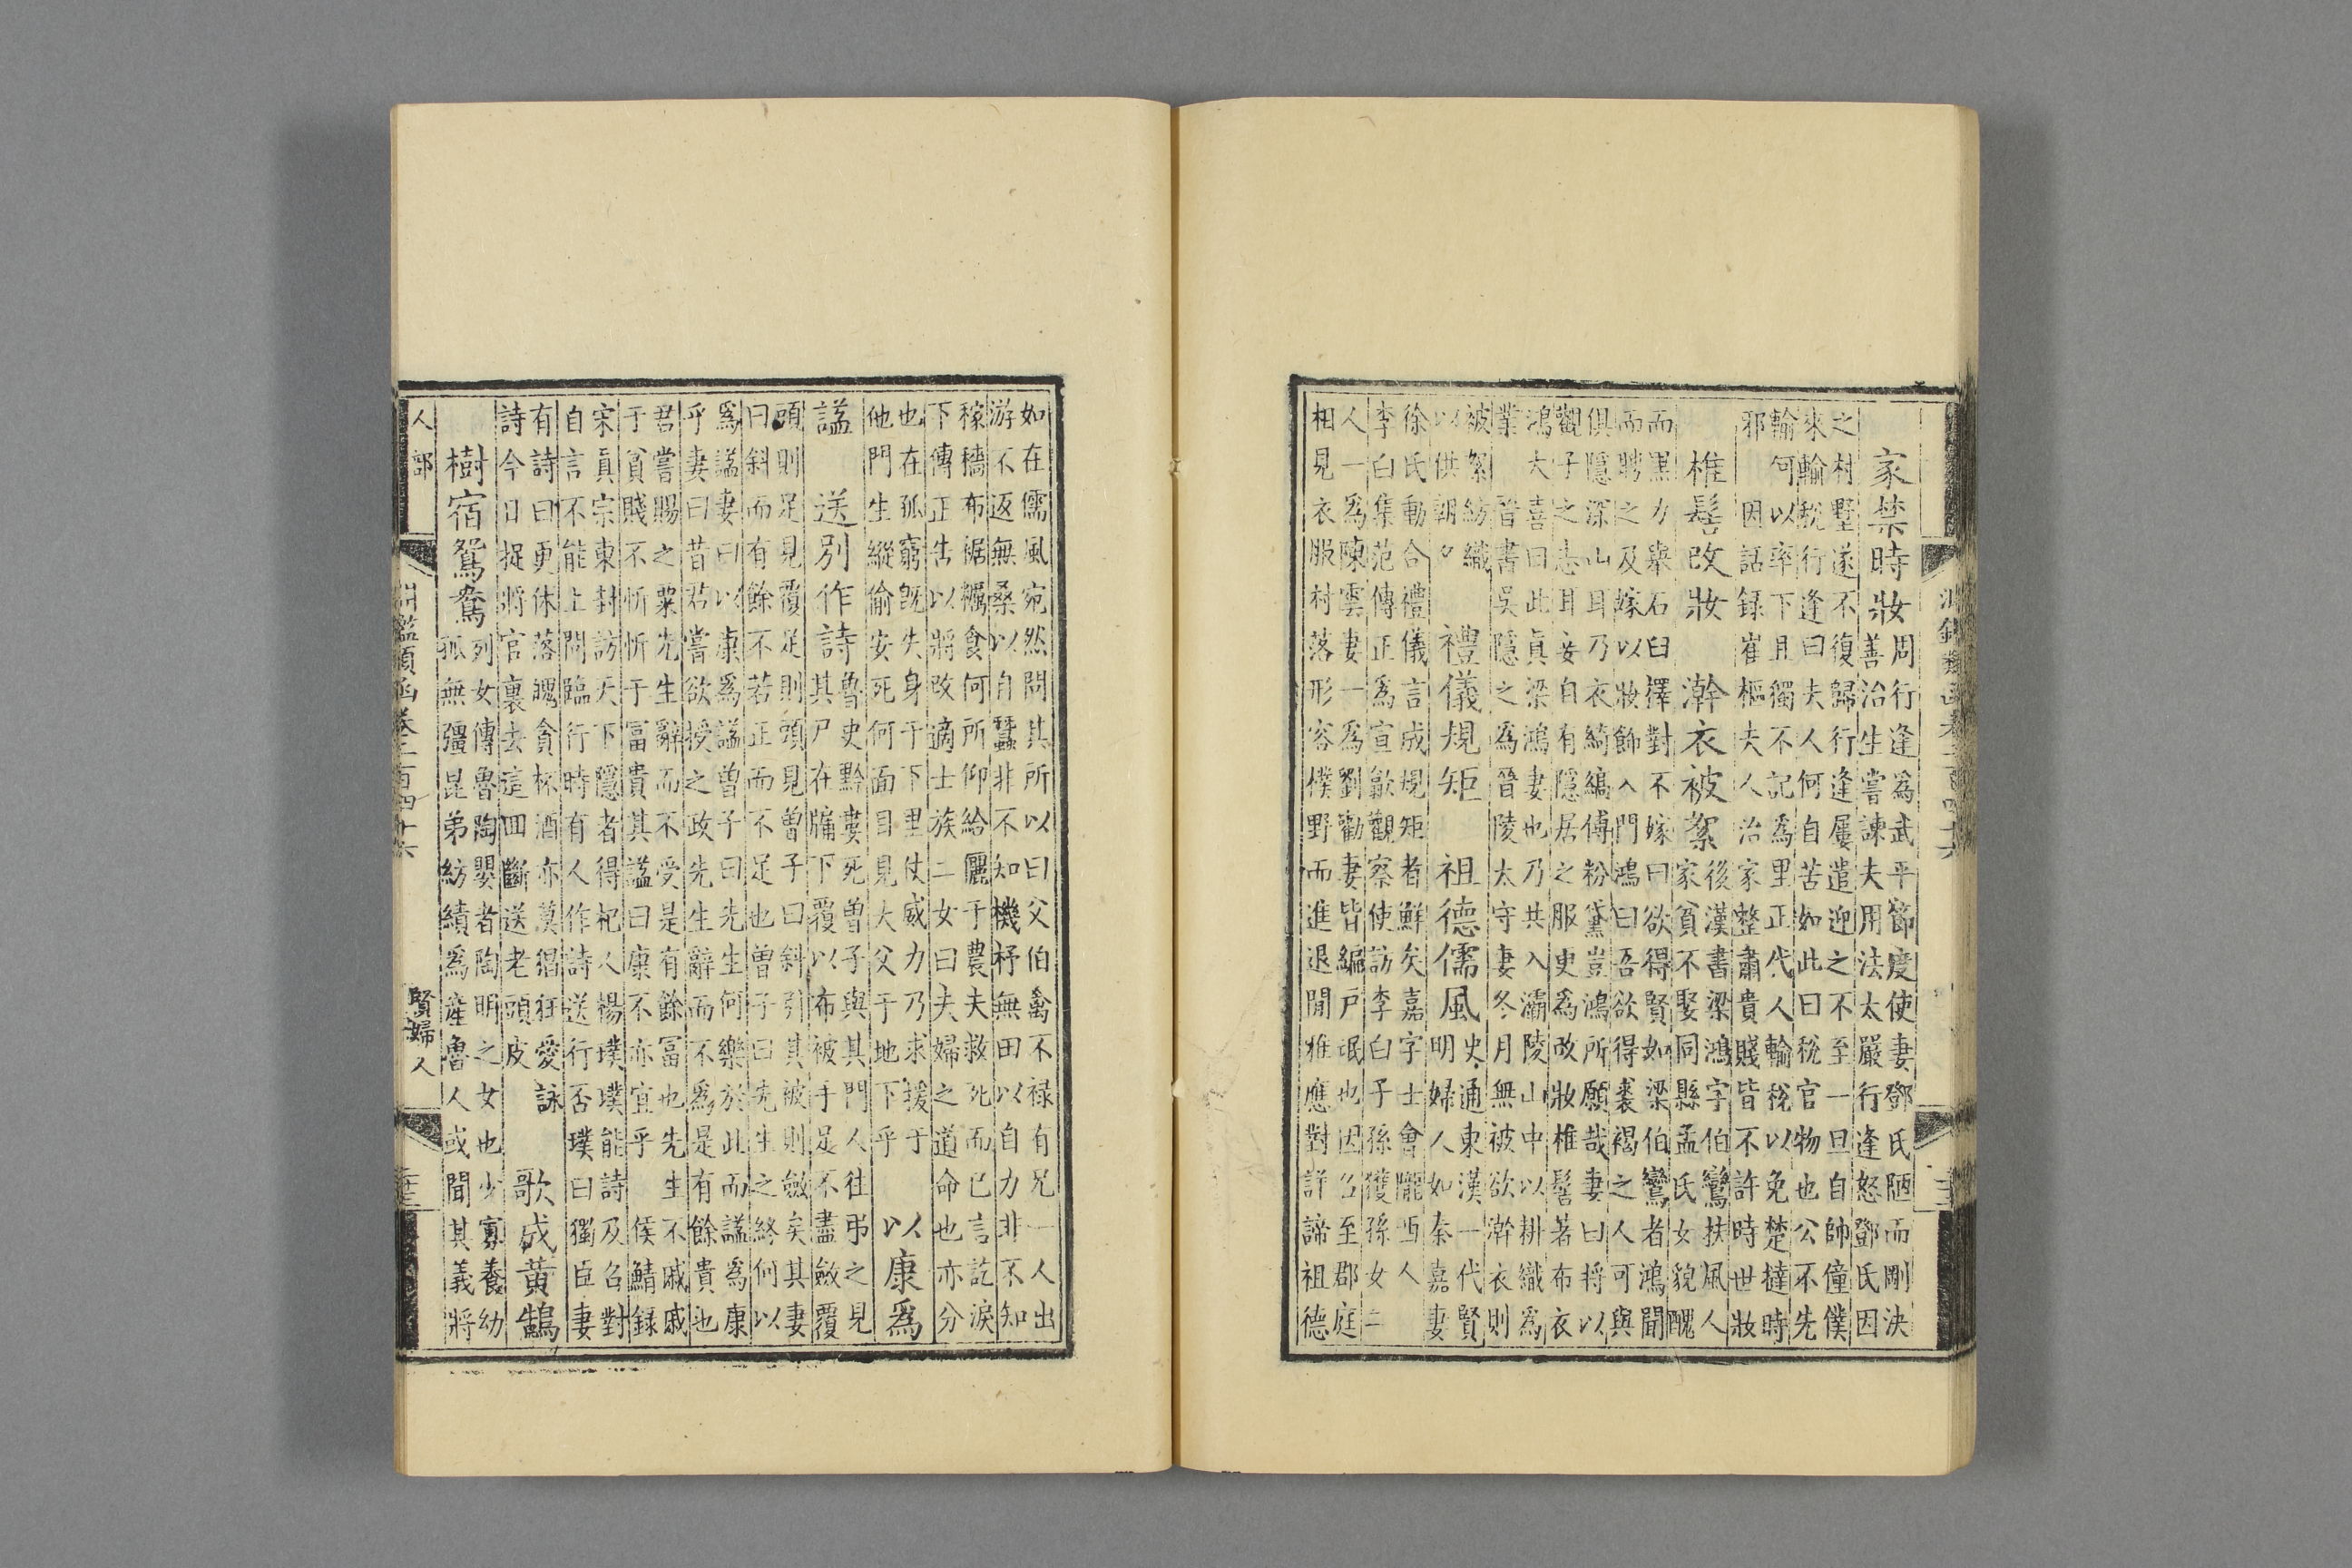 家禁時妝
周行逢為武平節度使妻鄧氏陋而剛決
善治生嘗諫夫用法太嚴行逢怒鄧氏因
之村墅遂不復歸行逢屢遣迎之不至一旦自帥僮僕
來輸稅行逢曰夫人何自苦如此曰稅官物也公不先
輸何以率下且獨不記為里正代人輸稅以免楚撻時
邪 因話録崔樞夫人治家整肅貴賤皆不許時世妝
椎髻改妝 澣衣被絮
後漢書梁鴻字伯鸞扶風人
家貧不娶同縣孟氏女貌醜
而黑力舉石臼擇對不嫁曰欲得賢如梁伯鸞者鴻聞
而聘之及嫁以妝飾入門鴻曰吾欲得裘褐之人可與
俱隱深山耳乃衣綺縞傅粉黛豈鴻所願哉妻曰將以
觀子之志耳妾自有隱居之服更為改妝椎髻著布衣
鴻大喜曰此真梁鴻妻也乃共入灞陵山中以耕織為
業 晉書吳隱之為晉陵太守妻冬月無被欲澣衣則
被絮紡織
以供朝夕
禮儀規矩 祖德儒風
史通東漢一代賢
明婦人如秦嘉妻
徐氏動合禮儀言成規矩者鮮矣嘉字士會隴西人
李白集范傳正為宣歙觀察使訪李白子孫獲孫女二
人一為陳雲妻一為劉勸妻皆編戶氓也因召至郡庭
相見衣服村落形容樸野而進退閒雅應對詳諦祖德
如在儒風宛然問其所以曰父伯禽不禄有兄一人出
游不返無桑以自蠶非不知機杼無田以自力非不知
稼穡布裾糲食何所仰給儷于農夫救死而已言訖淚
下傳正告以將改適士族二女曰夫婦之道命也亦分
也在孤窮既失身于下里仗威力乃求援于
他門生縱偷安死何面目見大父于地下乎
以康為
諡 送別作詩
魯史黔婁死曾子與其門人往弔之見
其尸在牖下覆以布被手足不盡斂覆
頭則足見覆足則頭見曾子曰斜引其被則斂矣其妻
曰斜而有餘不若正而不足也曾子曰先生之終何以
為諡妻曰以康為諡曾子曰先生何樂於此而諡為康
乎妻曰昔君嘗欲授之政先生辭而不為是有餘貴也
君嘗賜之粟先生辭而不受是有餘冨也先生不戚戚
于貧賤不忻忻于冨貴其諡曰康不亦宜乎 侯鯖録
宋真宗東封訪天下隱者得杞人楊璞璞能詩及召對
自言不能上問臨行時有人作詩送行否璞曰獨臣妻
有詩曰更休落魄貪杯酒亦莫猖狂愛詠
詩今日捉將官裏去這回斷送老頭皮
歌成黃鵠
樹宿鴛鴦
列女傳魯陶嬰者陶明之女也少寡養幼
孤無彊昆弟紡績為産魯人或聞其義將
人部
淵鑑類函卷二百四十六
賢婦人